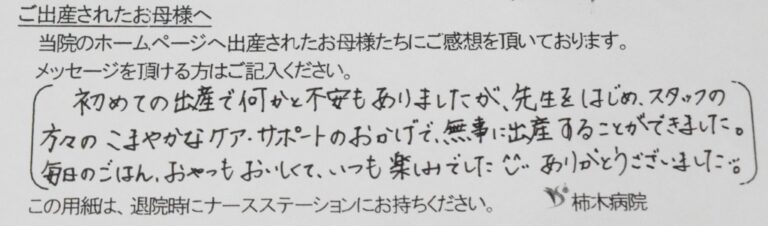 ご出産されたお母様へ
当院のホームページへ出産されたお母様たちにご感想を頂いております。
メッセージを頂ける方はご記入ください。
初めての出産で何かと不安もありましたが、先生をはじめ、スタッフの
方々のこまやかなケア・サポートのおかげで、無事に出産することができました。
毎日のごはん、おやつもおいしくて、いつも楽しみでした ありがとうございました。
この用紙は、退院時にナースステーションにお持ちください。 柿木病院